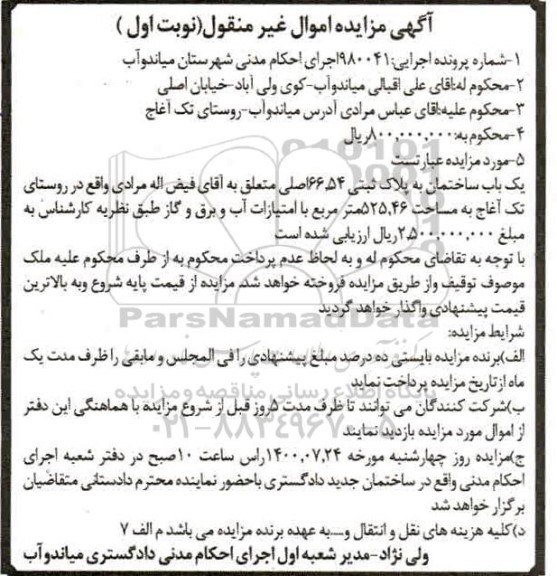 آگهی مزایده اموال غیر منقول(نوبت اول )
۱-شماره پرونده اجرایی:۹۸۰۰۴۱اجرای احکام مدنی شهرستان میاندوآب
۲-محکوم له:اقای علی اقبالی میاندوآب-کوی ولی آباد-خیابان اصلی
۳-محکوم علیه:اقای عباس مرادی آدرس میاندوآب-روستای تک آغاج
۴-محکوم به:۸۰۰,۰۰۰,۰۰۰ریال
۵-مورد مزایده عبارتست
یک باب ساختمان به پلاک ثبتی ۶۶,۵۴اصلی متعلق به آقای فیض اله مرادی واقع در روستای
تک آغاج به مساحت ۵۲۵,۴۶متر مربع با امتیازات آب و برق و گاز طبق نظریه کارشناس به
مبلغ ۲,۵۰۰,۰۰۰,۰۰۰ریال ارزیابی شده است
با توجه به تقاضای محکوم له و به لحاظ عدم پرداخت محکوم به از طرف محکوم علیه ملک
موصوف توقیف واز طریق مزایده فروخته خواهد شد. مزایده از قیمت پایه شروع وبه بالاترین
قیمت پیشنهادی واگذار خواهد گردید
ParsNamadData
شرایط مزایده:
الف)برنده مزایده بایستی ده درصد مبلغ پیشنهادی را فی المجلس و مابقی را ظرف مدت یک
ماه از تاریخ مزایده پرداخت نماید
پایگاه اطلاع رسانی مناقصه و مزایده
ب)شرکت کنندگان می توانند تا ظرف مدت ۵روز قبل از شروع مزایده با هماهنگی این دفتر
۰۲۱-۸۸۳۴۹۶۷۰-۵
از اموال مورد مزایده بازدید نمایند
ج)مزایده روز چهارشنبه مورخه ۱۴۰۰,۰۷,۲۴راس ساعت ۱۰صبح در دفتر شعبه اجرای
احکام مدنی واقع در ساختمان جدید دادگستری باحضور نماینده محترم دادستانی متقاضیان
برگزار خواهد شد
د)کلیه هزینه های نقل و انتقال و...به عهده برنده مزایده می باشد م الف ۷
ولی نژاد-مدیر شعبه اول اجرای احکام مدنی دادگستری میاندوآب